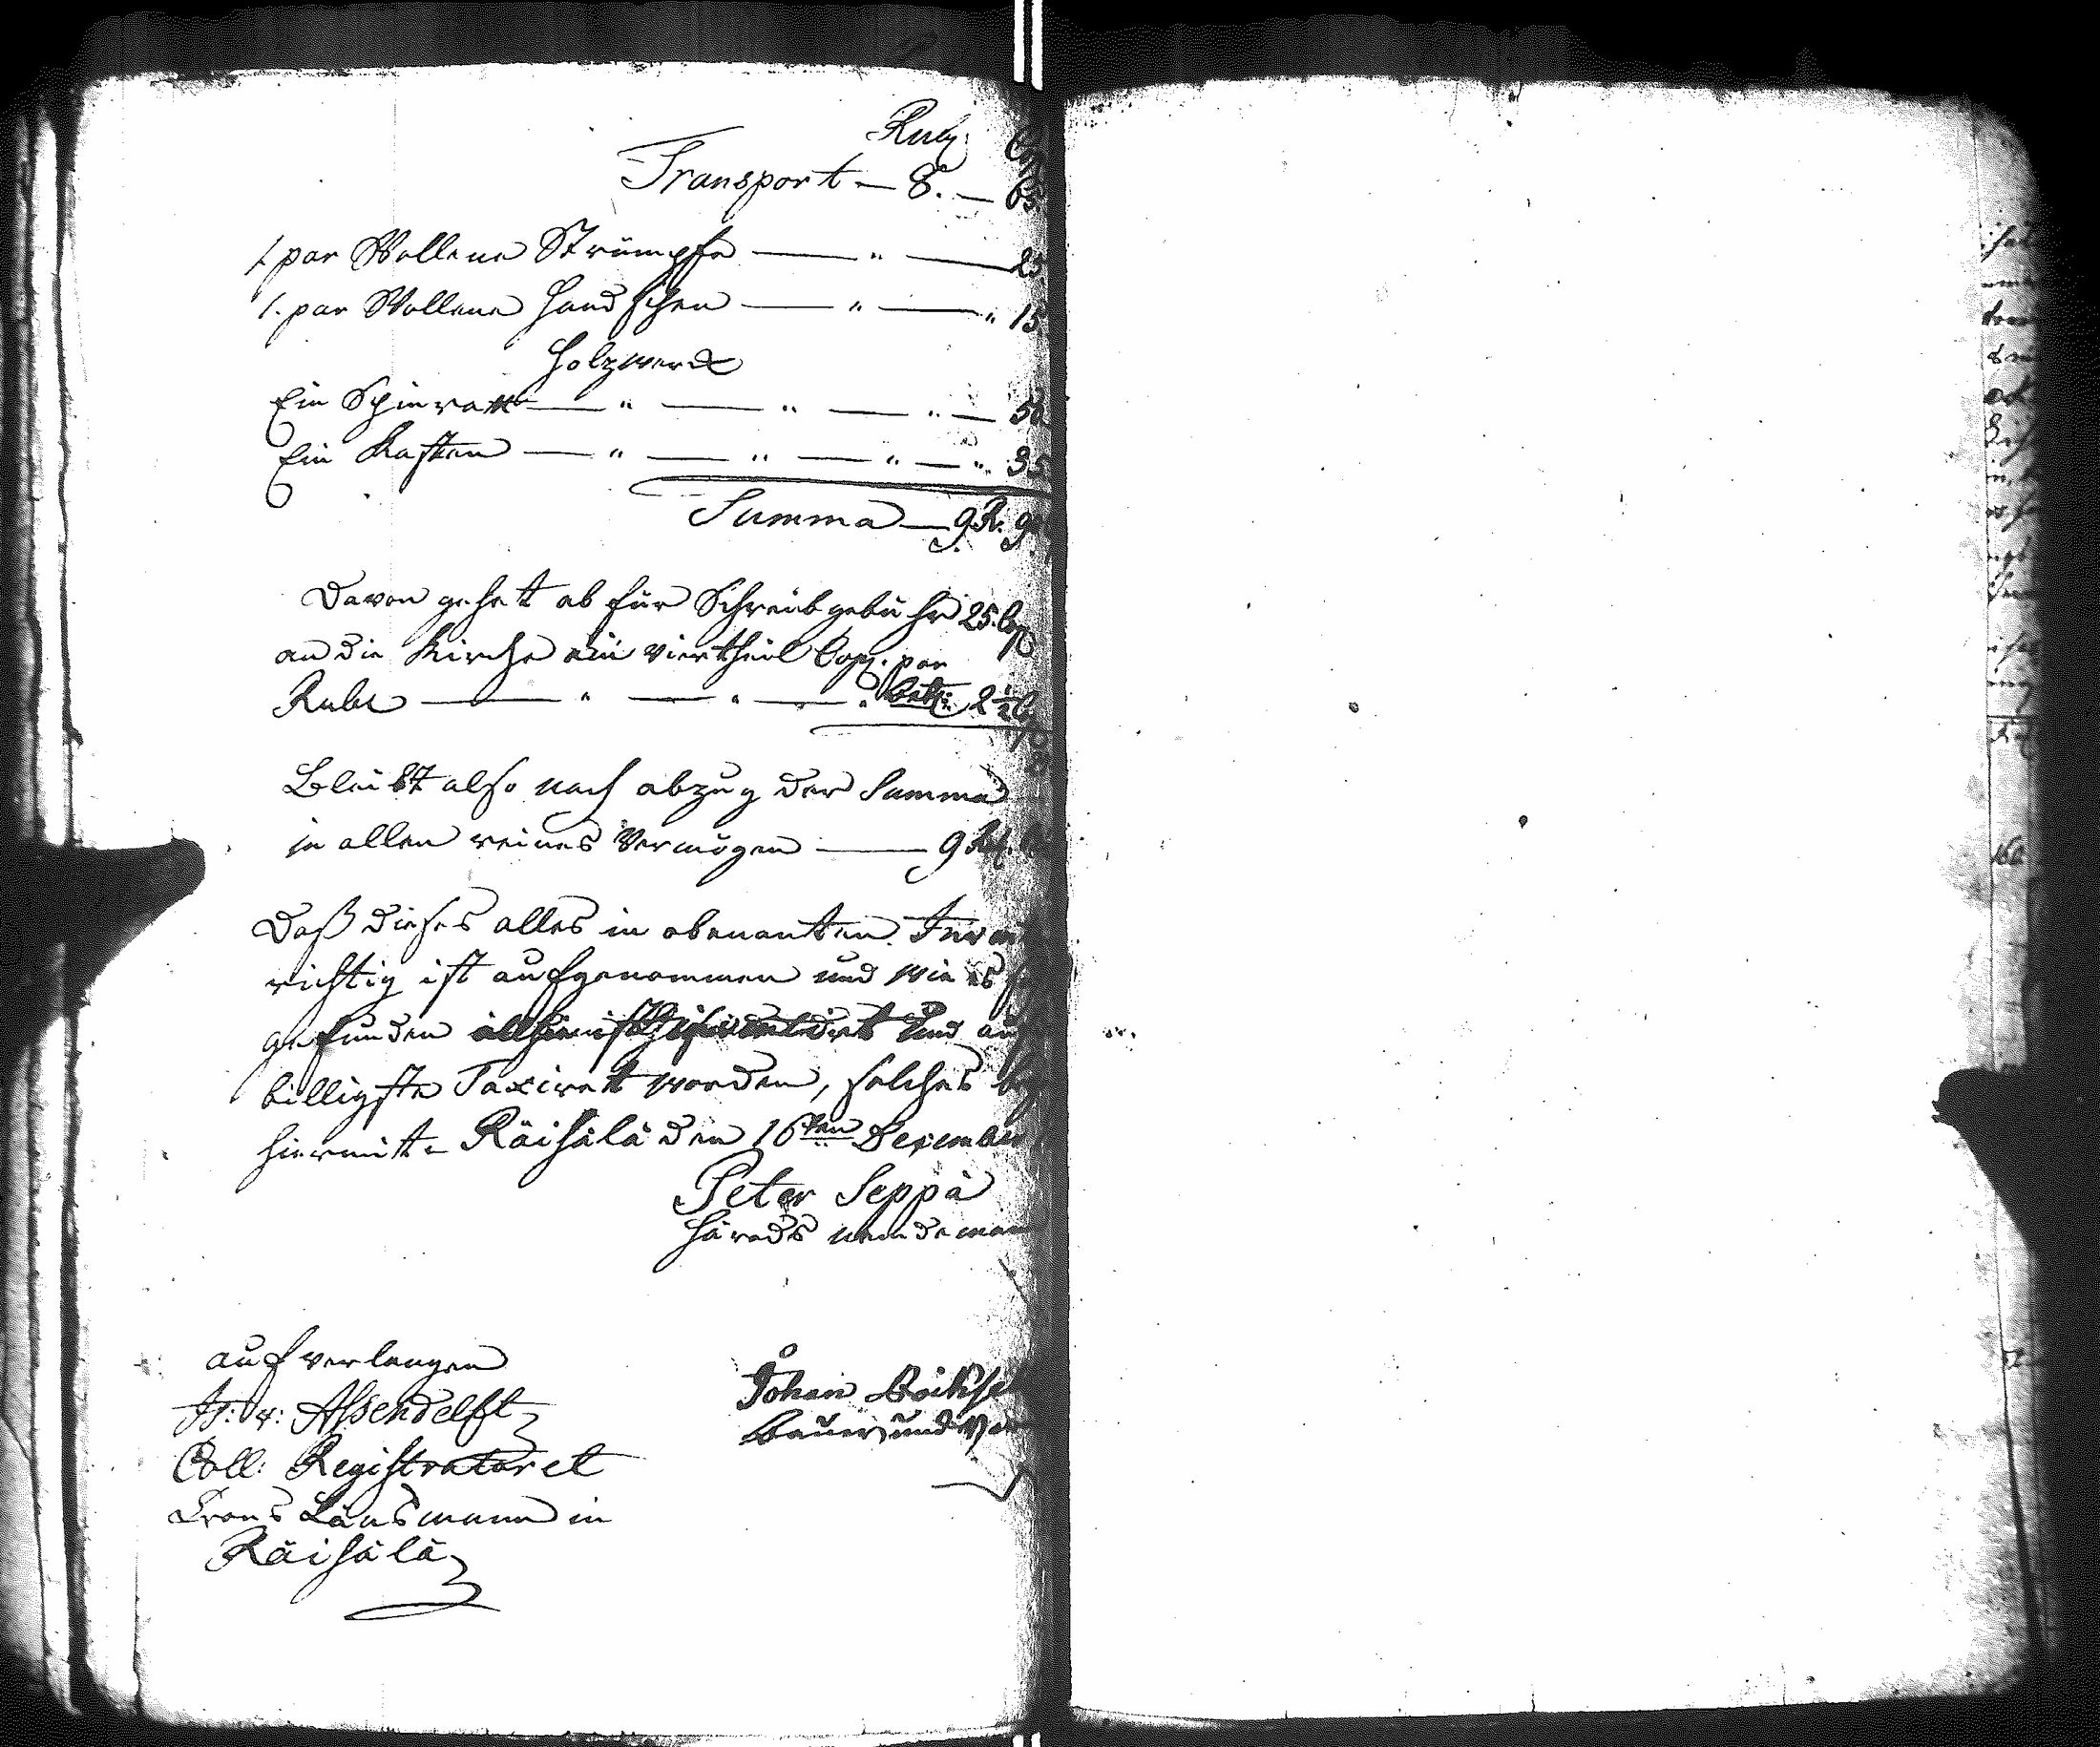 Rub
Transport — 8. — 65
1 par Wollene Strümpfe — " — 25
1. par Wollene Handschen — " — " 15
Holzwerck
Ein Spinratt — " — " — " — 50
Ein Kasten — " — " — " — " 35
Summa — 9 R. 90
Davon gehet ab für Schreibgebühr 25. Cop
an die Kirche ein viertheil Cop. par
Rubl — " — " — " 2 1/2
Bleibt also nach abzug der Summa
in allen reines Vermögen — 9 Rub.
Daß dieses alles in obenanten
richtig ist aufgenommen und wie es
gefunden und auf
billigste Taxiret worden, solches
hiermit. Räisälä den 16ten December
Peter Seppä
Härads nemdeman
auf verlangen
v: Assendelft
Coll: Registrator et
Crons Länsmann in
Räisälä
Johan
Bauer und